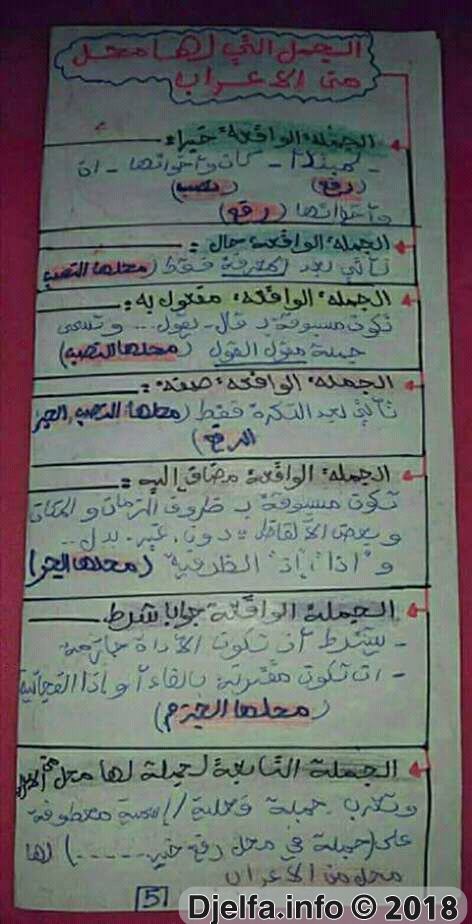 الجمل التي لها محل
من الاعراب
الجملة الواقعة خبر
- لمبتدأ - كان وأخواتها - ان
(رفع) (نصب)
وأخواتها (رفع)
الجملة الواقعة حال :
تأتي بعد المعرفة فقط (محلها النصب
الجملة الواقعة مفعول به :
تكون مسبوقة بـ قال - يقول ... وتسمى
جملة مقول القول (محلها النصب)
الجملة الواقعة صفة :
تأتي بعد النكرة فقط (محلها النصب الجر
الرفع)
الجملة الواقعة مضاف إليه :
تكون مسبوقة بـ ظروف الزمان و المكان
و بعض الألفاظ : دون، غير، بدل ..
و "اذا"، "إذ" الظرفية (محلها الجر)
الجملة الواقعة جواب شرط
- يشترط أن تكون الأداة جازمة
- ان تكون مقترنة بالفاء أو إذا الفجائية
(محلها الجزم)
الجملة التابعة لجملة لها محل من الاعراب
وتعرب جملة فعلية // إسمية معطوفة
على (جملة في محل رفع خبر ......) لها
محل من الاعراب
5
Djelfa.info © 2018